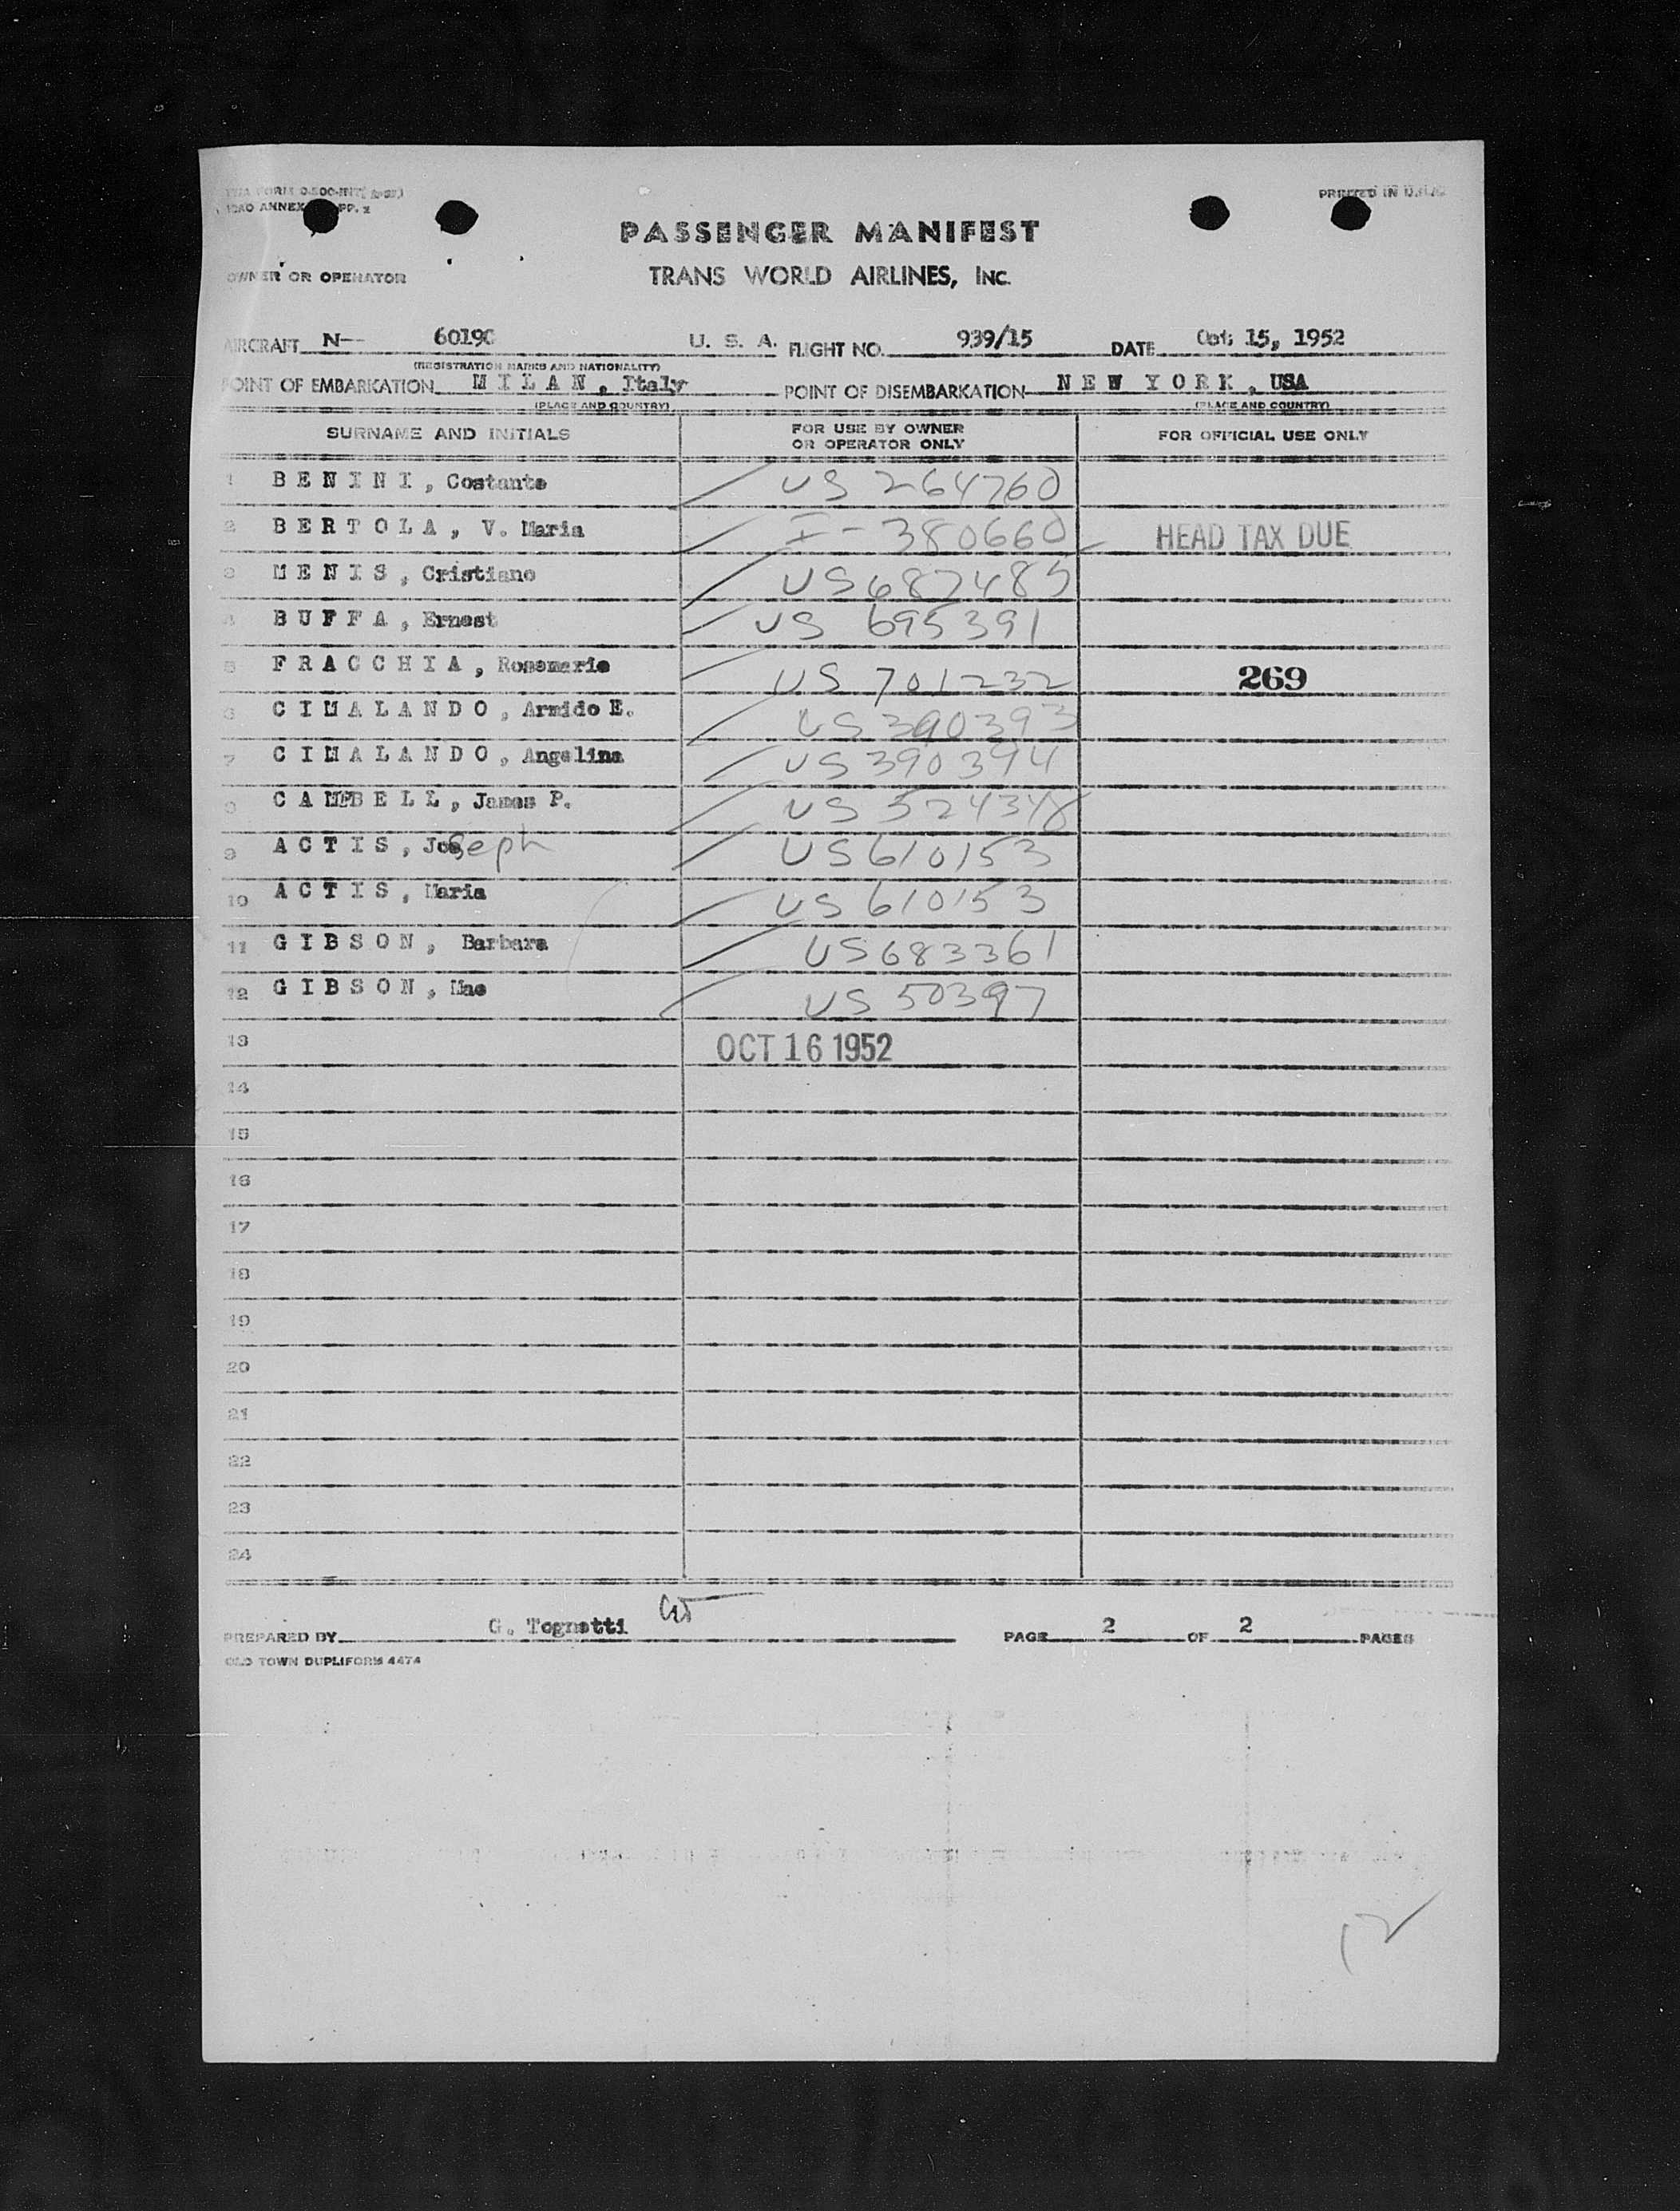 TWA FORM O-500-INT
ICAO ANNEX PP. PRINTED IN U.S.A.
PASSENGER MANIFEST
OWNER OR OPERATOR TRANS WORLD AIRLINES, INC.
AIRCRAFT N-- 6019C U. S. A. FLIGHT NO. 939/15 DATE Oct 15, 1952
(REGISTRATION MARKS AND NATIONALITY)
POINT OF EMBARKATION M I L A N , Italy POINT OF DISEMBARKATION N E W Y O R K , USA
(PLACE AND COUNTRY) (PLACE AND COUNTRY)
SURNAME AND INITIALS FOR USE BY OWNER OR OPERATOR ONLY FOR OFFICIAL USE ONLY
1 B E N I N I , Costante US 264760
2 B E R T O L A , V. Maria I-380660 HEAD TAX DUE
3 M E N I S , Cristiano US 687485
4 B U F F A , Ernest US 695391
5 F R A C C H I A , Rosemarie US 701232 269
6 C I M A L A N D O , Armido E. US 390393
7 C I M A L A N D O , Angelina US 390394
8 C A MPB E L L , James P. US 524348
9 A C T I S , Joseph US 610153
10 A C T I S , Maria US 610153
11 G I B S O N , Barbara US 683361
12 G I B S O N , Mae US 50397
13 OCT 16 1952
14
15
16
17
18
19
20
21
22
23
24
PREPARED BY G. Tognetti PAGE 2 OF 2 PAGES
OLD TOWN DUPLIFORM 4474
12